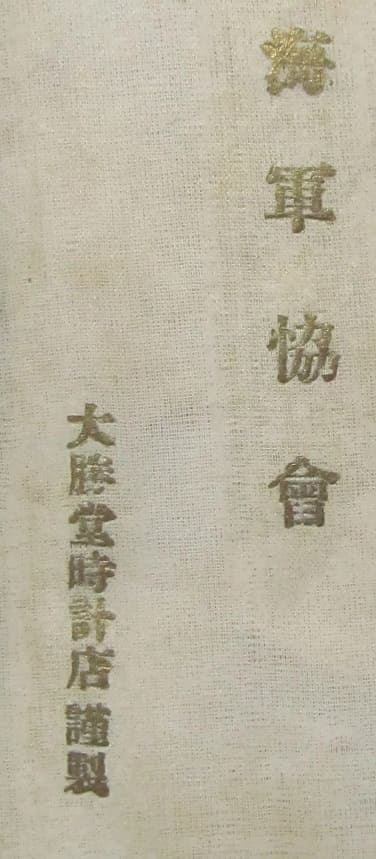 海軍協會
大勝堂時計店謹製